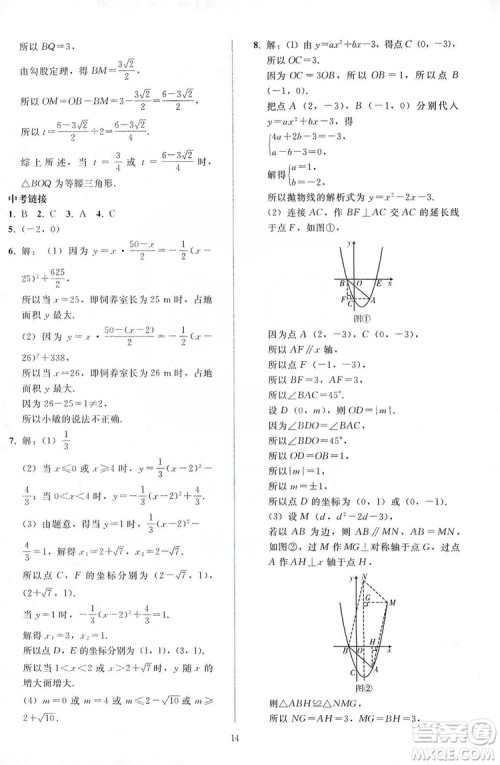 所以 BQ=3,
由勾股定理，得 BM=3√2/2,
所以 OM=OB-BM=3-3√2/2=6-3√2/2,
所以 t=6-3√2/2÷2=6-3√2/4.
综上所述，当 t=3/4 或 t=6-3√2/4 时，
△BOQ 为等腰三角形.
中考链接
1. B  2. C  3. A  4. C
5. (-2, 0)
6. 解：(1) 因为 y=x·50-x/2=-1/2(x-
25)²+625/2
所以当 x=25，即饲养室长为 25 m 时，占地
面积 y 最大.
(2) 因为 y=x·50-(x-2)/2=-1/2(x-
26)²+338,
所以当 x=26，即饲养室长为 26 m 时，占地
面积 y 最大.
因为 26-25=1≠2,
所以小敏的说法不正确.
7. 解：(1) 1/3
(2) 当 x≤0 或 x≥4 时，y=1/3(x-2)²-
4/3；当 0<x<4 时，y=-1/3(x-2)²+4/3.
(3) 由题意，得当 y=1 时，1/3(x-2)²-
4/3=1，解得 x=2-√7，x=2+√7,
所以点 C，F 的坐标分别为 (2-√7，1)，
(2+√7，1).
当 y=1 时，-1/3(x-2)²+4/3=1,
解得 x=1，x=3,
所以点 D，E 的坐标分别为 (1，1)，(3，1).
所以当 1<x<2 或 x>2+√7 时，y 随 x 的
增大而增大.
(4) x=0 或 x=4 或 x=2-√10 或 x=2+
√10.
8. 解：(1) 由 y=ax²+bx-3，得点 C(0，-3),
所以 OC=3.
因为 OC=3OB，所以 OB=1，所以点 B
(-1，0).
把点 A(2，-3)，B(-1，0) 分别代入
y=ax²+bx-3，得
{4a+2b-3=-3,
a-b-3=0,
解得{a=1,
b=-2,
所以抛物线的解析式为 y=x²-2x-3.
(2) 连接 AC，作 BF⊥AC，交 AC 的延长线
于点 F，如图①.
y
B O x
F C A
图①
因为点 A(2，-3)，C(0，-3),
所以 AF∥x 轴,
所以点 F(-1，-3),
所以 BF=3，AF=3,
所以∠BAC=45°.
设 D(0，m)，所以 OD=|m|.
因为∠BDO=∠BAC,
所以∠BDO=45°,
所以 OD=OB=1,
所以|m|=1,
所以 m=±1,
所以点 D 的坐标为(0，1)或(0，-1).
(3) 设 M(a，a²-2a-3)，N(1，n).
若以 AB 为边，则 AB∥MN，AB=MN，
如图②，过点 M 作 MG⊥对称轴于点 G,
AH⊥x 轴于点 H,
y N
G M
B O H x
A
图②
则△ABH≌△NMG,
所以 NG=AH=3，MG=BH=3,
14
答案圈
MXQE.COM